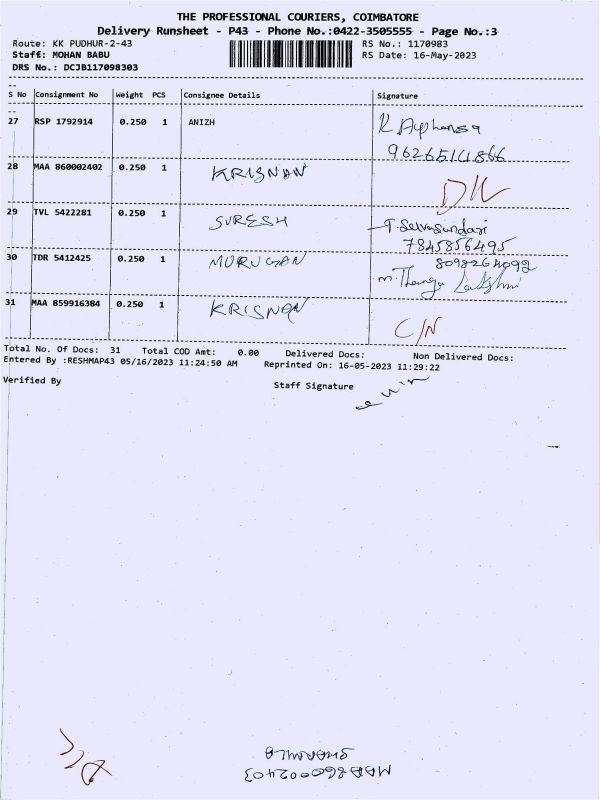 THE PROFESSIONAL COURIERS, COIMBATORE
Delivery Runsheet - P43 - Phone No.:0422-3505555 - Page No.:3
Route: KK PUDHUR-2-43
RS No.: 1170983
Staff: MOHAN BABU
RS Date: 16-May-2023
DRS No.: DCJB117098303
S No Consignment No Weight PCS Consignee Details Signature
27 RSP 1792914 0.250 1 ANIZH
28 MAA 860002402 0.250 1 KRISNAN
29 TVL 5422281 0.250 1 SURESH T. Selvasundari
7845856495
30 TDR 5412425 0.250 1 MURUGAN 8098264092
m. Thanga Lakshmi
31 MAA 859916384 0.250 1 KRISNAN
Total No. Of Docs: 31 Total COD Amt: 0.00 Delivered Docs: Non Delivered Docs:
Entered By :RESHMAP43 05/16/2023 11:24:50 AM Reprinted On: 16-05-2023 11:29:22
Verified By Staff Signature
MAA 860002403